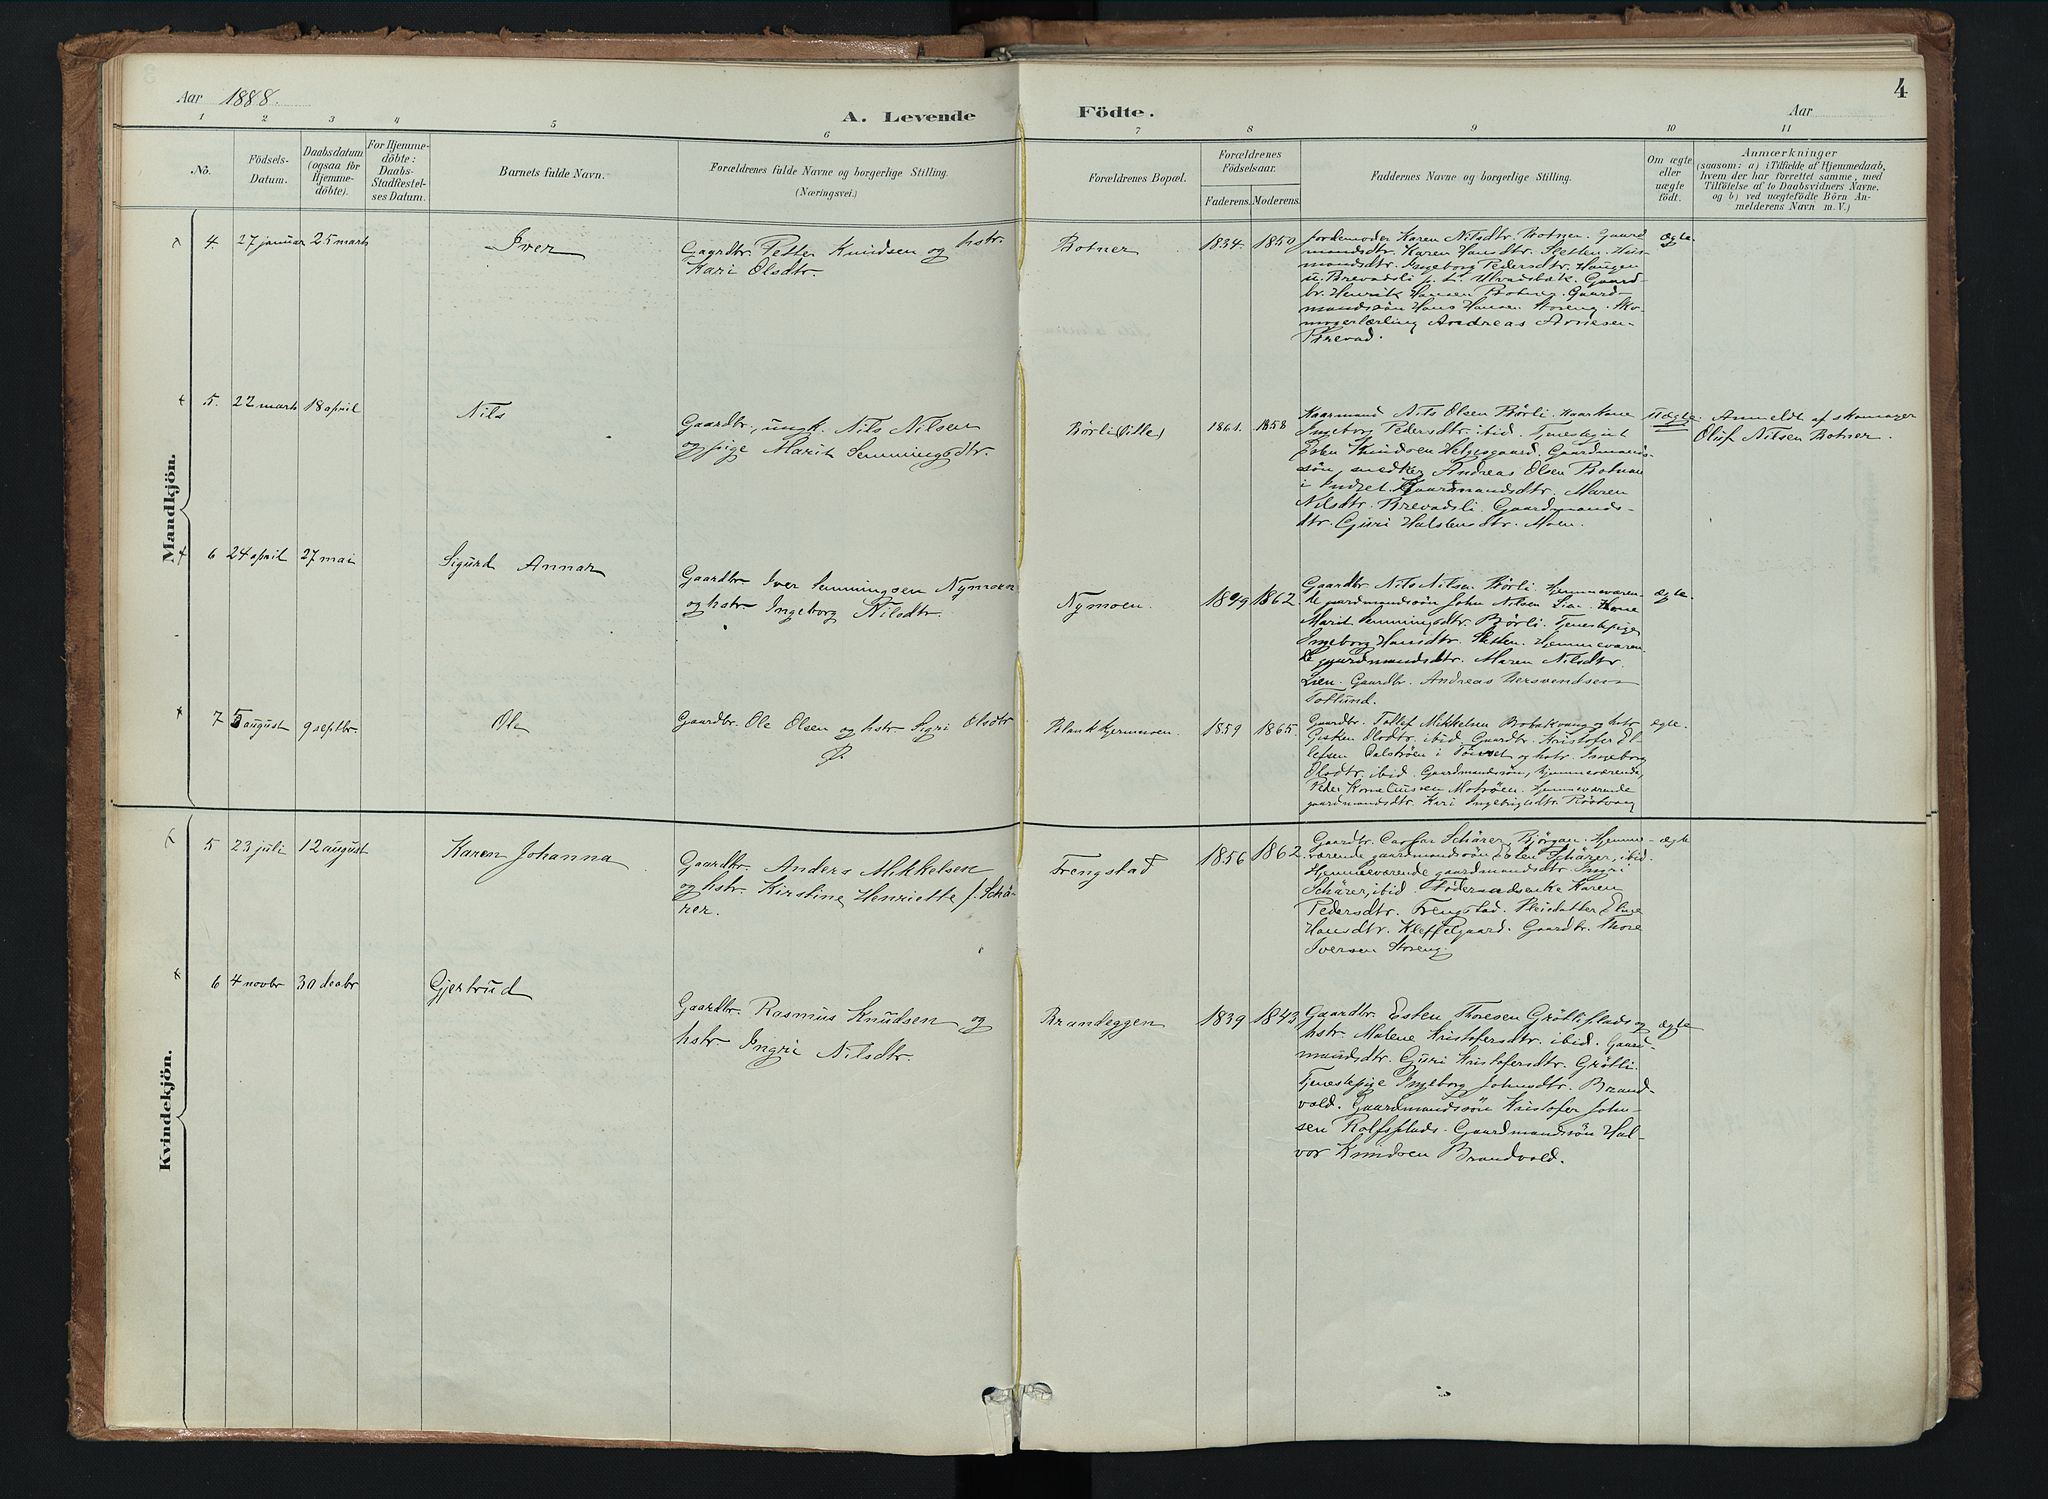 Aar 1888.
A. Levende Födte.
Aar
4
1 2 3 4 5 6 7 8 9 10 11
No.
Födsels-
Datum.
Daabsdatum
(ogsaa for
Hjemme-
döbte).
For Hjemme-
döbte:
Daabs-
Stadfæstel-
ses Datum.
Barnets fulde Navn.
Forældrenes fulde Navne og borgerlige Stilling.
(Næringsvei.)
Forældrenes Bopæl.
Forældrenes
Födselsaar.
Faderens. Moderens.
Faddernes Navne og borgerlige Stilling.
Om ægte
eller
uægte
födt.
Anmærkninger
(saasom: a) i Tilfælde af Hjemmedaab,
hvem der har forrettet samme, med
Tilföielse af to Daabsvidners Navne,
og b) ved uægtefödte Börn An-
melderens Navn m. V.)
Mandkjön.
4. 27 januar 25 marts
Iver
Gaardbr. Petter Knudsen og hstr.
Kari Olsdtr.
Botner
1834. 1850
Jordemoder Karen Nilsdtr. Botner. Gaard-
mandsdtr. Karen Hansdtr. Sletten. Hus-
mandsdtr. Ingeborg Pedersdtr. Haugen
u. Brevadsli p. t. Ulvaasbäk. Gaard-
br. Henrik Hansen Botner. Gaard-
mandssön Hans Hansen Storeng. Sko-
magerlærling Andreas Arnesen
Brevad.
ægte.
5. 22 marts 18 april
Nils
Gaardbr., ungk. Nils Nilsen
og pige Marit Semmingsdtr.
Börli (lille)
1861. 1858
Kaarmand Nils Olsen Börli. Kaarkone
Ingeborg Pedersdtr. ibid. Tjenestegut
Esten Knudsen Helgesgaard. Gaardmands-
sön, snedker Andreas Olsen Botnan
i Indset. Gaardmandsdtr. Maren
Nilsdtr. Brevadsli. Gaardmands-
dtr. Guri Halstensdtr. Moen.
uægte.
Anmeldt af skomager
Oluf Nilsen Botner.
6 24 april 27 mai
Sigurd Annar
Gaardbr. Iver Semmingsen Nymoen
og hstr Ingeborg Nilsdtr.
Nymoen.
1862.
Gaardbr Nils Nilsen Börli. Hjemmeværen-
de gaardmandssön John Nilsen Lien. Kone
Marit Semmingsdtr. Börli. Tjenestepige
Ingeborg Hansdtr. Sletten. Hjemmeværen-
de gaardmandsdtr. Maren Nilsdtr.
Lien. Gaardbr. Andreas Mersvendsen
Toflund.
ægte.
7 5 august 9 septbr.
Ole
Gaardbr. Ole Olsen og hstr Sigri Olsdtr
Blankkjernmoen.
1859 1865.
Gaardbr. Tollef Mikkelsen Bobakvang og hstr
Gjertrud Olsdtr. ibid. Gaardbr. Kristofer El-
lefsen Dalströen i Tönset og hstr. Ingeborg
Olsdtr. ibid. Gaardmandssön, hjemmeværende,
Peder Korneliussen Moströen. Hjemmeværende
gaardmandsdtr. Kari Ingebrigtsdtr. Röstvang
ægte.
Kvindekjön.
5 23 juli 12 august
Karen Johanna
Gaardbr. Anders Mikkelsen
og hstr. Kirstine Henriette f. Schä-
rer.
Frengstad
1856 1862
Gaardbr. Caspar Schärer, Björgan. Hjemme-
værende gaardmandssön Esten Schärer, ibid.
Hjemmeværende gaardmandsdtr. Ingri
Schärer, ibid. Föderaadsenke Karen
Pedersdtr. Frengstad. Pleiedatter Eline
Hansdtr. Kleffelgaard. Gaardbr. Thore
Iversen Storeng.
ægte
6 4 novbr 30 decbr
Gjertrud
Gaardbr. Rasmus Knudsen og
hstr. Ingri Nilsdtr.
Brandeggen
1839 1843
Gaardbr. Esten Thoresen Grötliplads og
hstr. Malene Kristofersdtr. ibid. Gaard-
mandsdtr. Guri Kristofersdtr. Grötli.
Tjenestepige Ingeborg Johnsdtr. Brand-
vold. Gaardmandssön Kristofer John-
sen Rolfsplads. Gaardmandssön Hal-
vor Knudsen Brandvold.
ægte